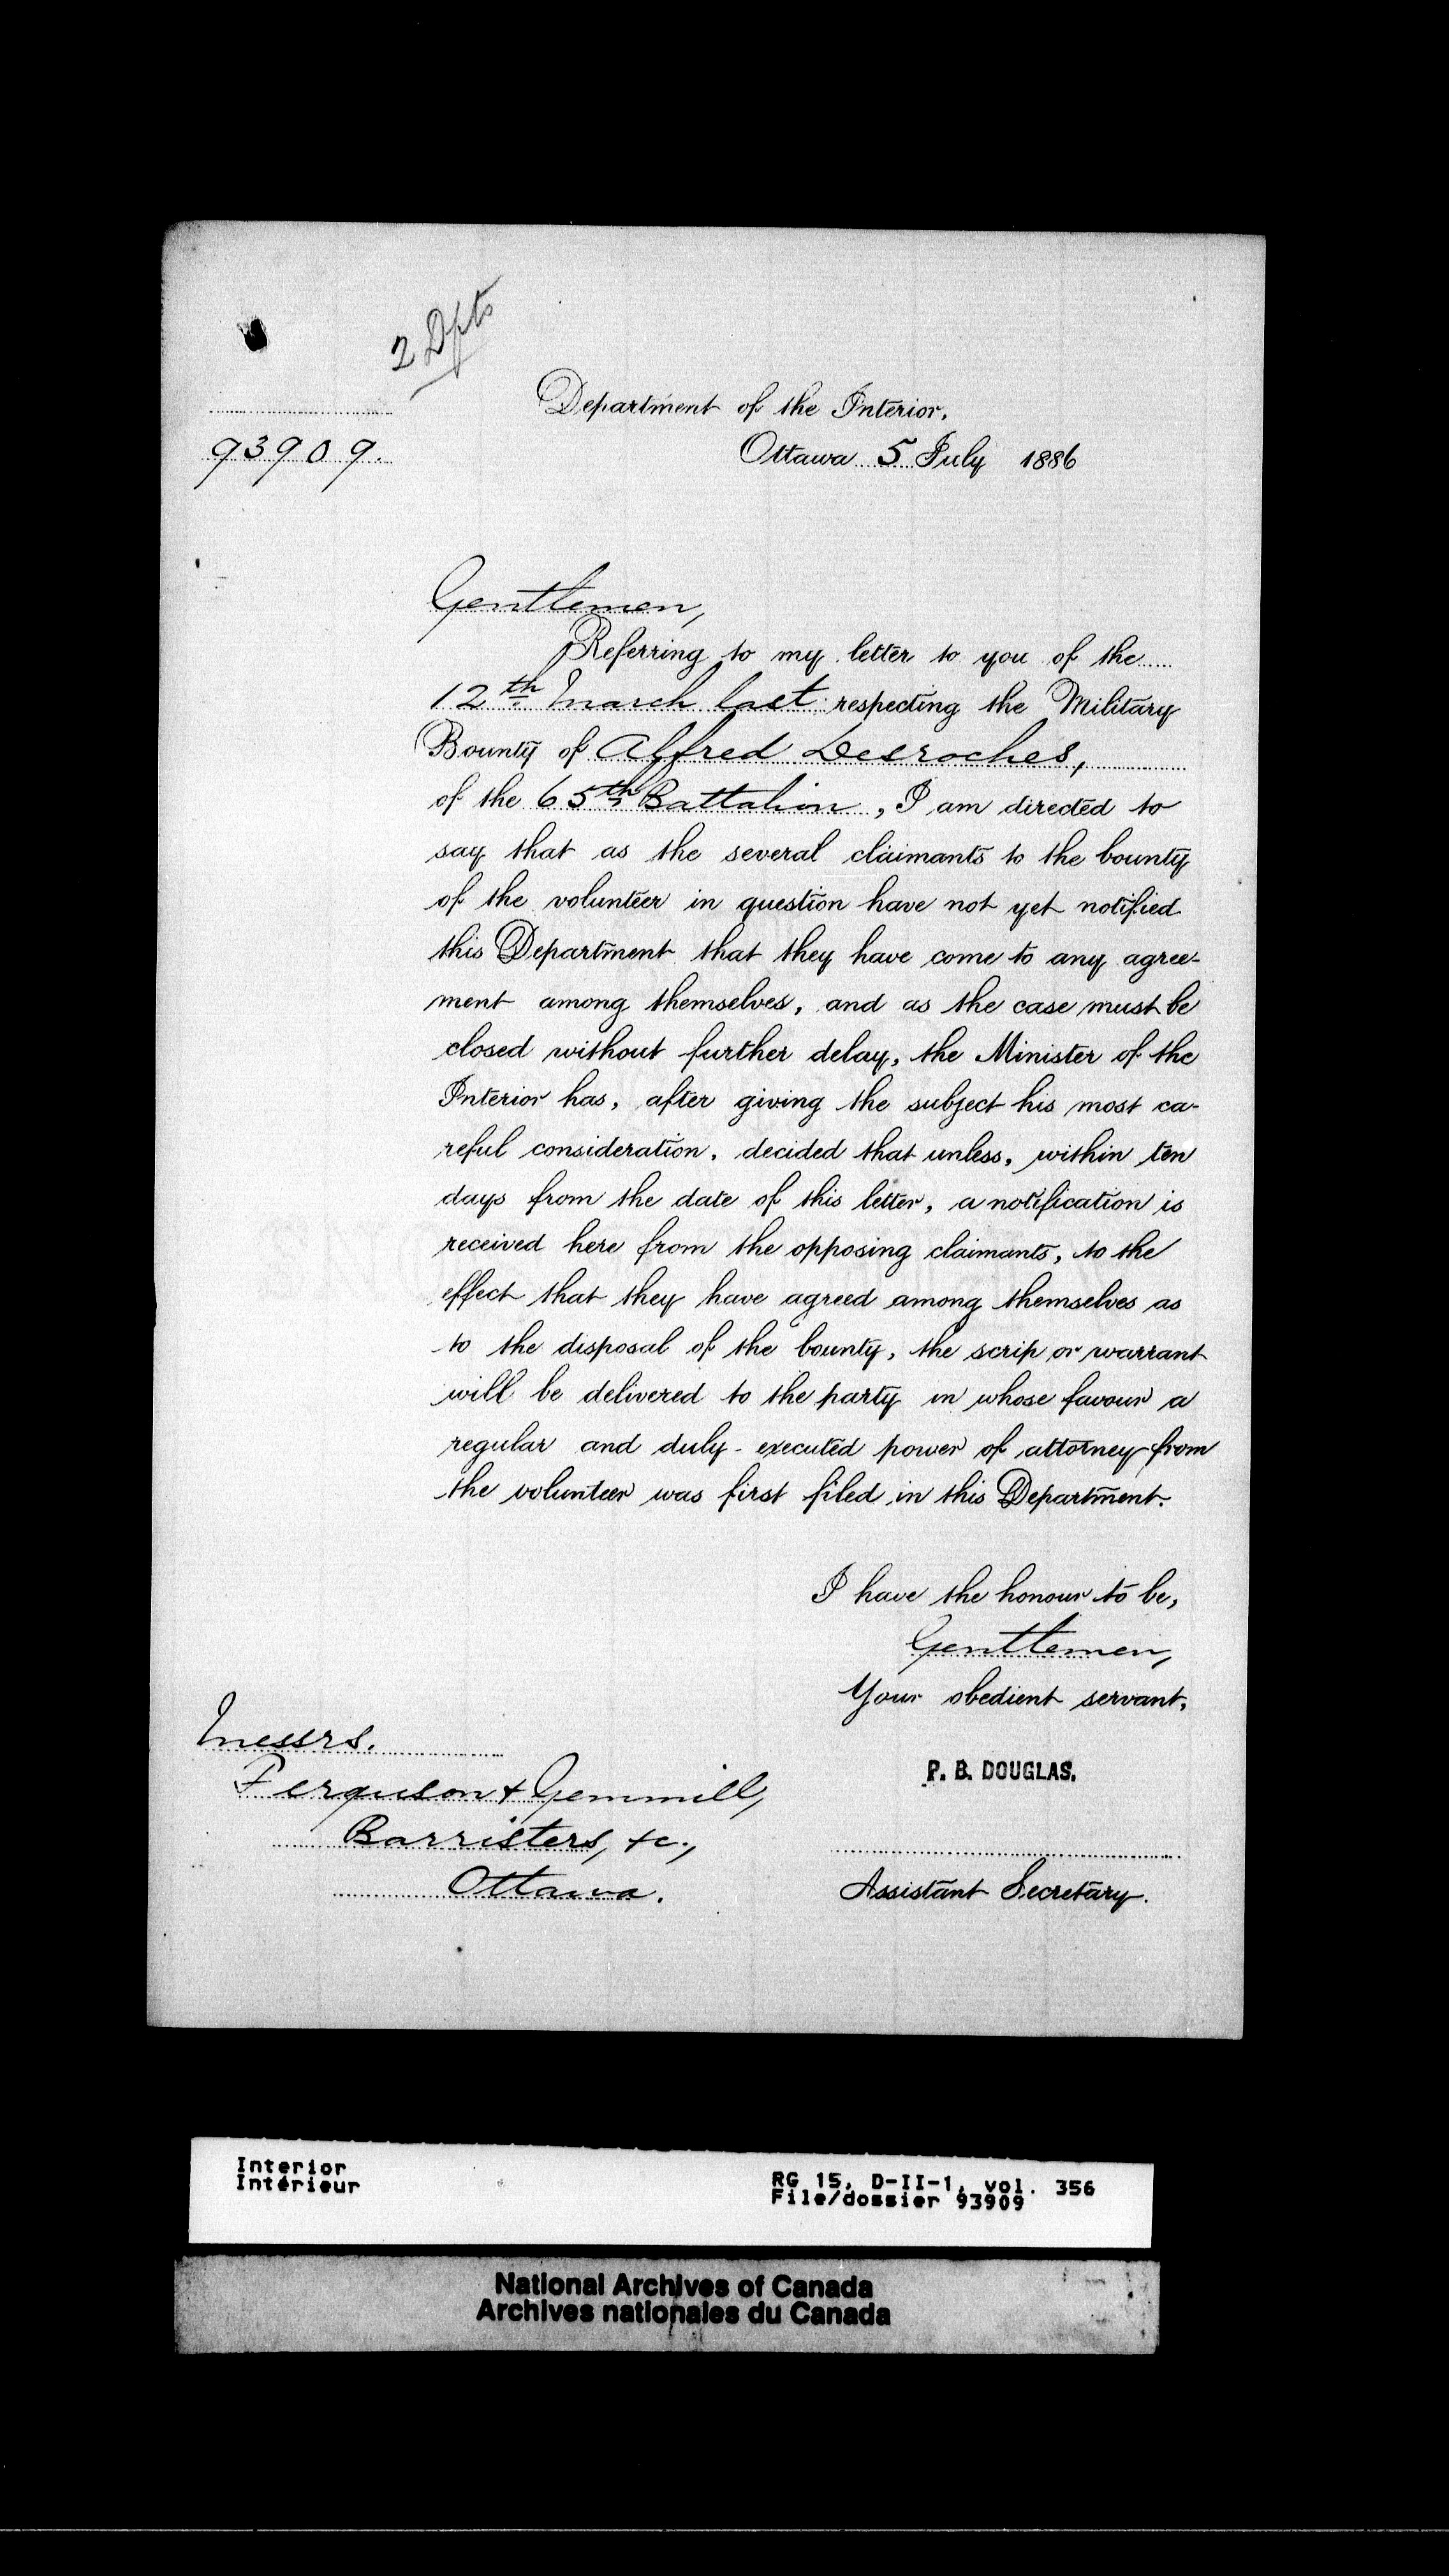 2 Dpts
Department of the Interior.
93909.
Ottawa 5 July 1886
Gentlemen,
Referring to my letter to you of the
12th March last respecting the Military
Bounty of Alfred Desroches,
of the 65th Battalion, I am directed to
say that as the several claimants to the bounty
of the volunteer in question have not yet notified
this Department that they have come to any agree-
ment among themselves, and as the case must be
closed without further delay, the Minister of the
Interior has, after giving the subject his most ca-
reful consideration, decided that unless, within ten
days from the date of this letter, a notification is
received here from the opposing claimants, to the
effect that they have agreed among themselves as
to the disposal of the bounty, the scrip or warrant
will be delivered to the party in whose favour a
regular and duly-executed power of attorney from
the volunteer was first filed in this Department.
I have the honour to be,
Gentlemen,
Your obedient servant,
P. B. DOUGLAS.
Assistant Secretary.
Messrs.
Ferguson & Gemmill,
Barristers, &c.,
Ottawa.
Interior
Intérieur
RG 15, D-II-1, vol. 356
File/dossier 93909
National Archives of Canada
Archives nationales du Canada